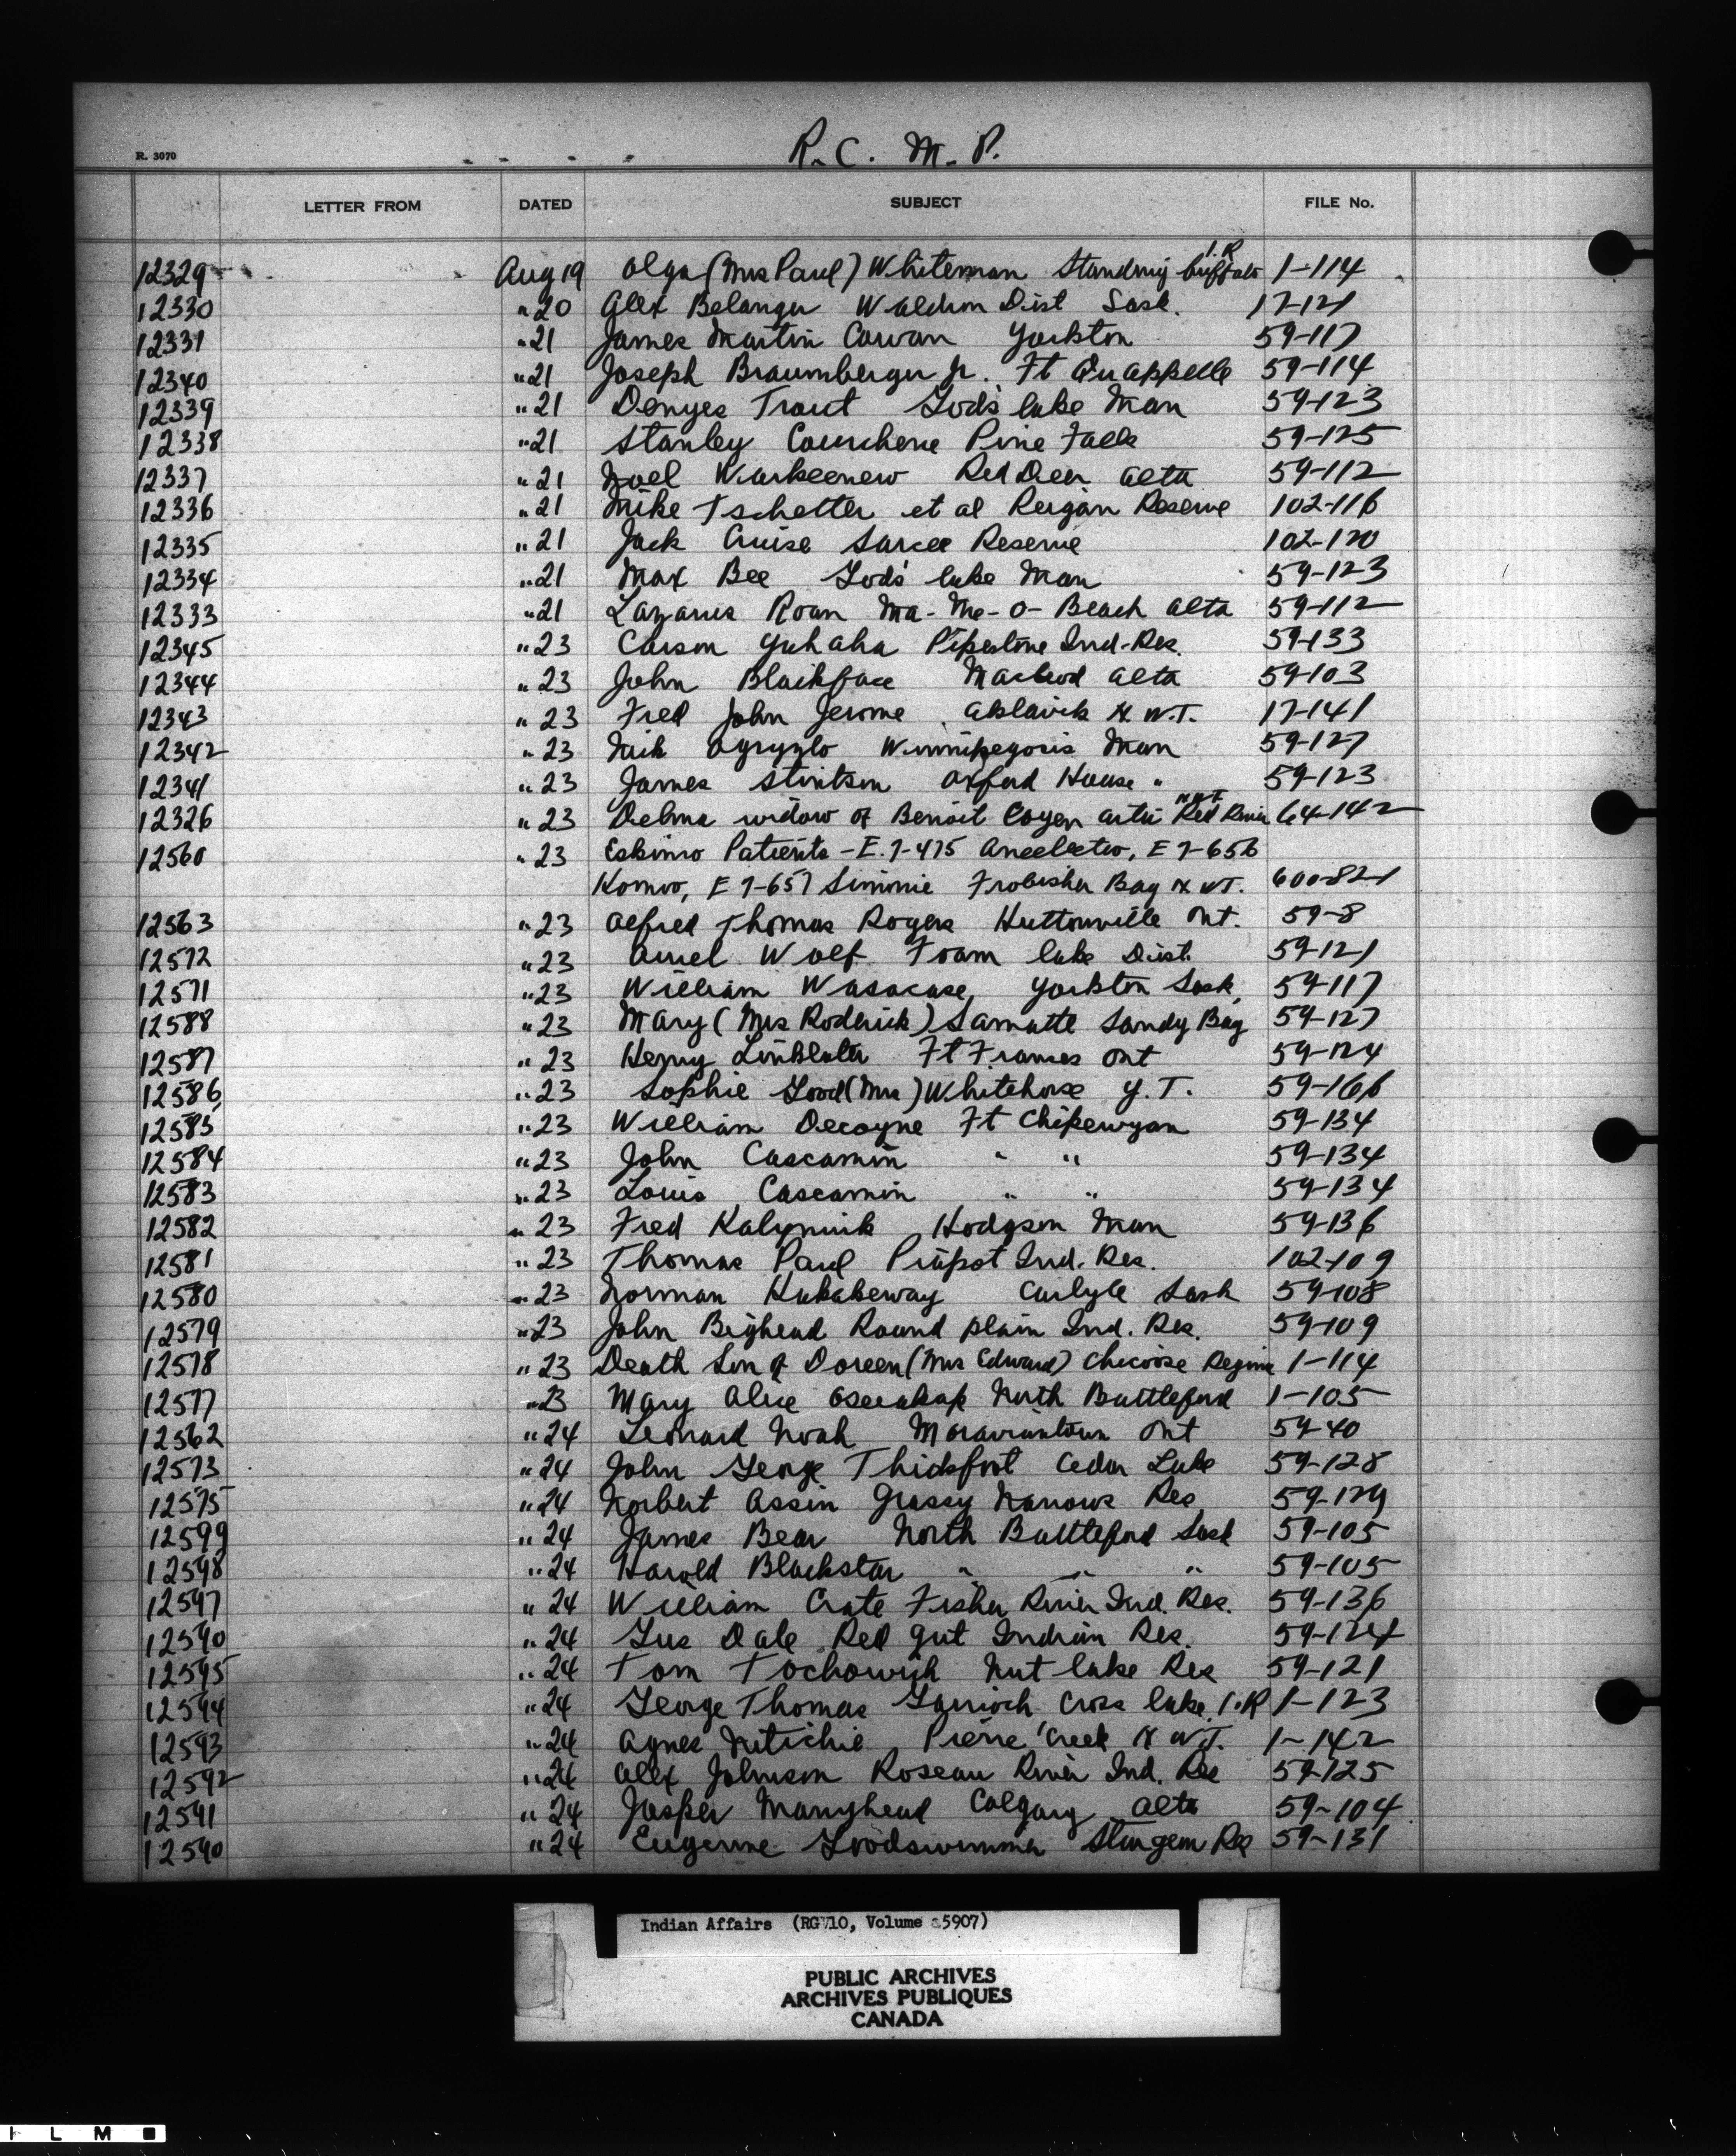 R. 3070
R. C. M. P.
LETTER FROM DATED SUBJECT FILE No.
12329 Aug 19 Olga (Mrs Paul) Whiteman Standing Buffalo I.R 1-114
12330 " 20 Alex Belanger Waldron Dist Sask. 17-121
12331 " 21 James Martin Cowan Yorkton 59-117
12340 " 21 Joseph Braumberger Jr. Ft Qu'Appelle 59-114
12339 " 21 Denyes Trout Gods lake Man 59-123
12338 " 21 Stanley Courchene Pine Falls 59-125
12337 " 21 Noel Warkeenew Red Deer Alta 59-112
12336 " 21 Mike Tschetter et al Peigan Reserve 102-116
12335 " 21 Jack Cruise Sarcee Reserve 102-120
12334 " 21 Max Bee Gods' lake Man 59-123
12333 " 21 Lazarus Roan Ma-Me-O-Beach Alta 59-112
12345 " 23 Carson Yuhaha Pipestone Ind. Res. 59-133
12344 " 23 John Blackface Macleod Alta 59-103
12343 " 23 Fred John Jerome Aklavik N.W.T. 17-141
12342 " 23 Nick Ogryzlo Winnipegosis Man 59-127
12341 " 23 James Stintson Oxford House " 59-123
12326 " 23 Delma widow of Benoit Coyen Arctic Red River NWT 64-142
12560 " 23 Eskimo Patients - E.7-475 E 7-656
Komoo, E 7-657 Simmie Frobisher Bay N.W.T. 600-82-1
12563 " 23 Alfred Thomas Rogers Huttonville Ont. 59-8
12572 " 23 Wolf Foam lake Dist. 59-121
12571 " 23 William Wasacase, Yorkton Sask, 59-117
12588 " 23 Mary (Mrs Roderick) Lamutte Sandy Bay 59-127
12587 " 23 Henry Linklater Ft Frances Ont 59-124
12586 " 23 Sophie Good (Mrs) Whitehorse Y.T. 59-166
12585 " 23 William Decoyne Ft Chipewyan 59-134
12584 " 23 John Cascamin " " 59-134
12583 " 23 Louis Cascamin " " 59-134
12582 " 23 Fred Kalyniuk Hodgson Man 59-136
12581 " 23 Thomas Paul Piapot Ind. Res. 102-109
12580 " 23 Norman Kakakeway Carlyle Sask 59-108
12579 " 23 John Bighead Round plain Ind. Res. 59-109
12578 " 23 Death Son of Doreen (Mrs Edward) Chicoose Regina 1-114
12577 " 23 Mary Alice North Battleford 1-105
12562 " 24 Leonard Noah Moraviantown Ont 59-40
12573 " 24 John George Thickfoot Cedar Lake 59-128
12575 " 24 Norbert Assin Grassy Narrows Res 59-129
12599 " 24 James Bear North Battleford Sask 59-105
12598 " 24 Harold Blackstar " " " 59-105
12597 " 24 William Crate Fisher River Ind. Res. 59-136
12590 " 24 Gus Dale Red gut Indian Res. 59-124
12595 " 24 Tom Tochowish Nut lake Res 59-121
12594 " 24 George Thomas Garrioch Cross lake I.R 1-123
12593 " 24 Agnes Nitichie Pierre Creek N.W.T. 1-142
12592 " 24 Alex Johnson Roseau River Ind. Res 59-125
12591 " 24 Jasper Manyhead Calgary Alta 59-104
12590 " 24 Eugenne Goodswimmer Sturgeon Res 59-131
Indian Affairs (RG 10, Volume 5907)
PUBLIC ARCHIVES
ARCHIVES PUBLIQUES
CANADA
I L M